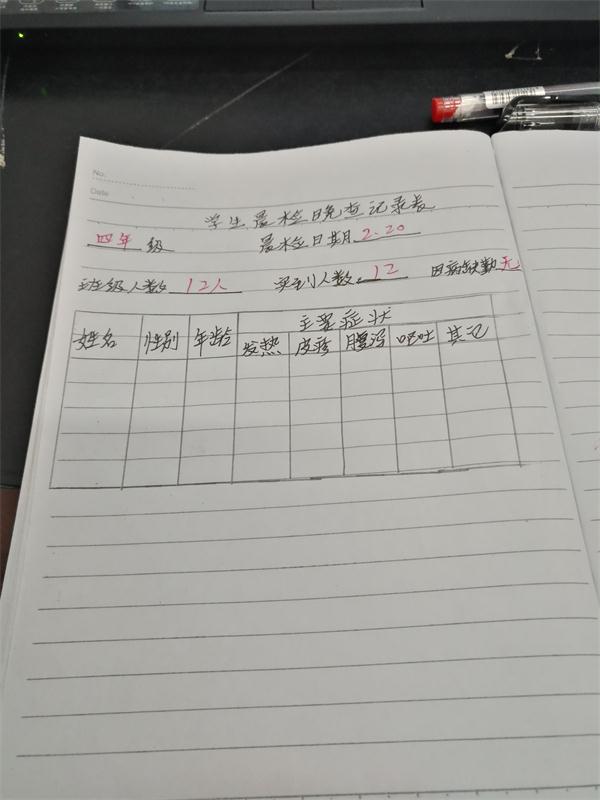 No.
Date
学生晨检晚查记录表
四年 级 晨检日期 2.20
班级人数 12人 实到人数 12 因病缺勤 无
主要症状
姓名 性别 年龄 发热 皮疹 腹泻 呕吐 其它